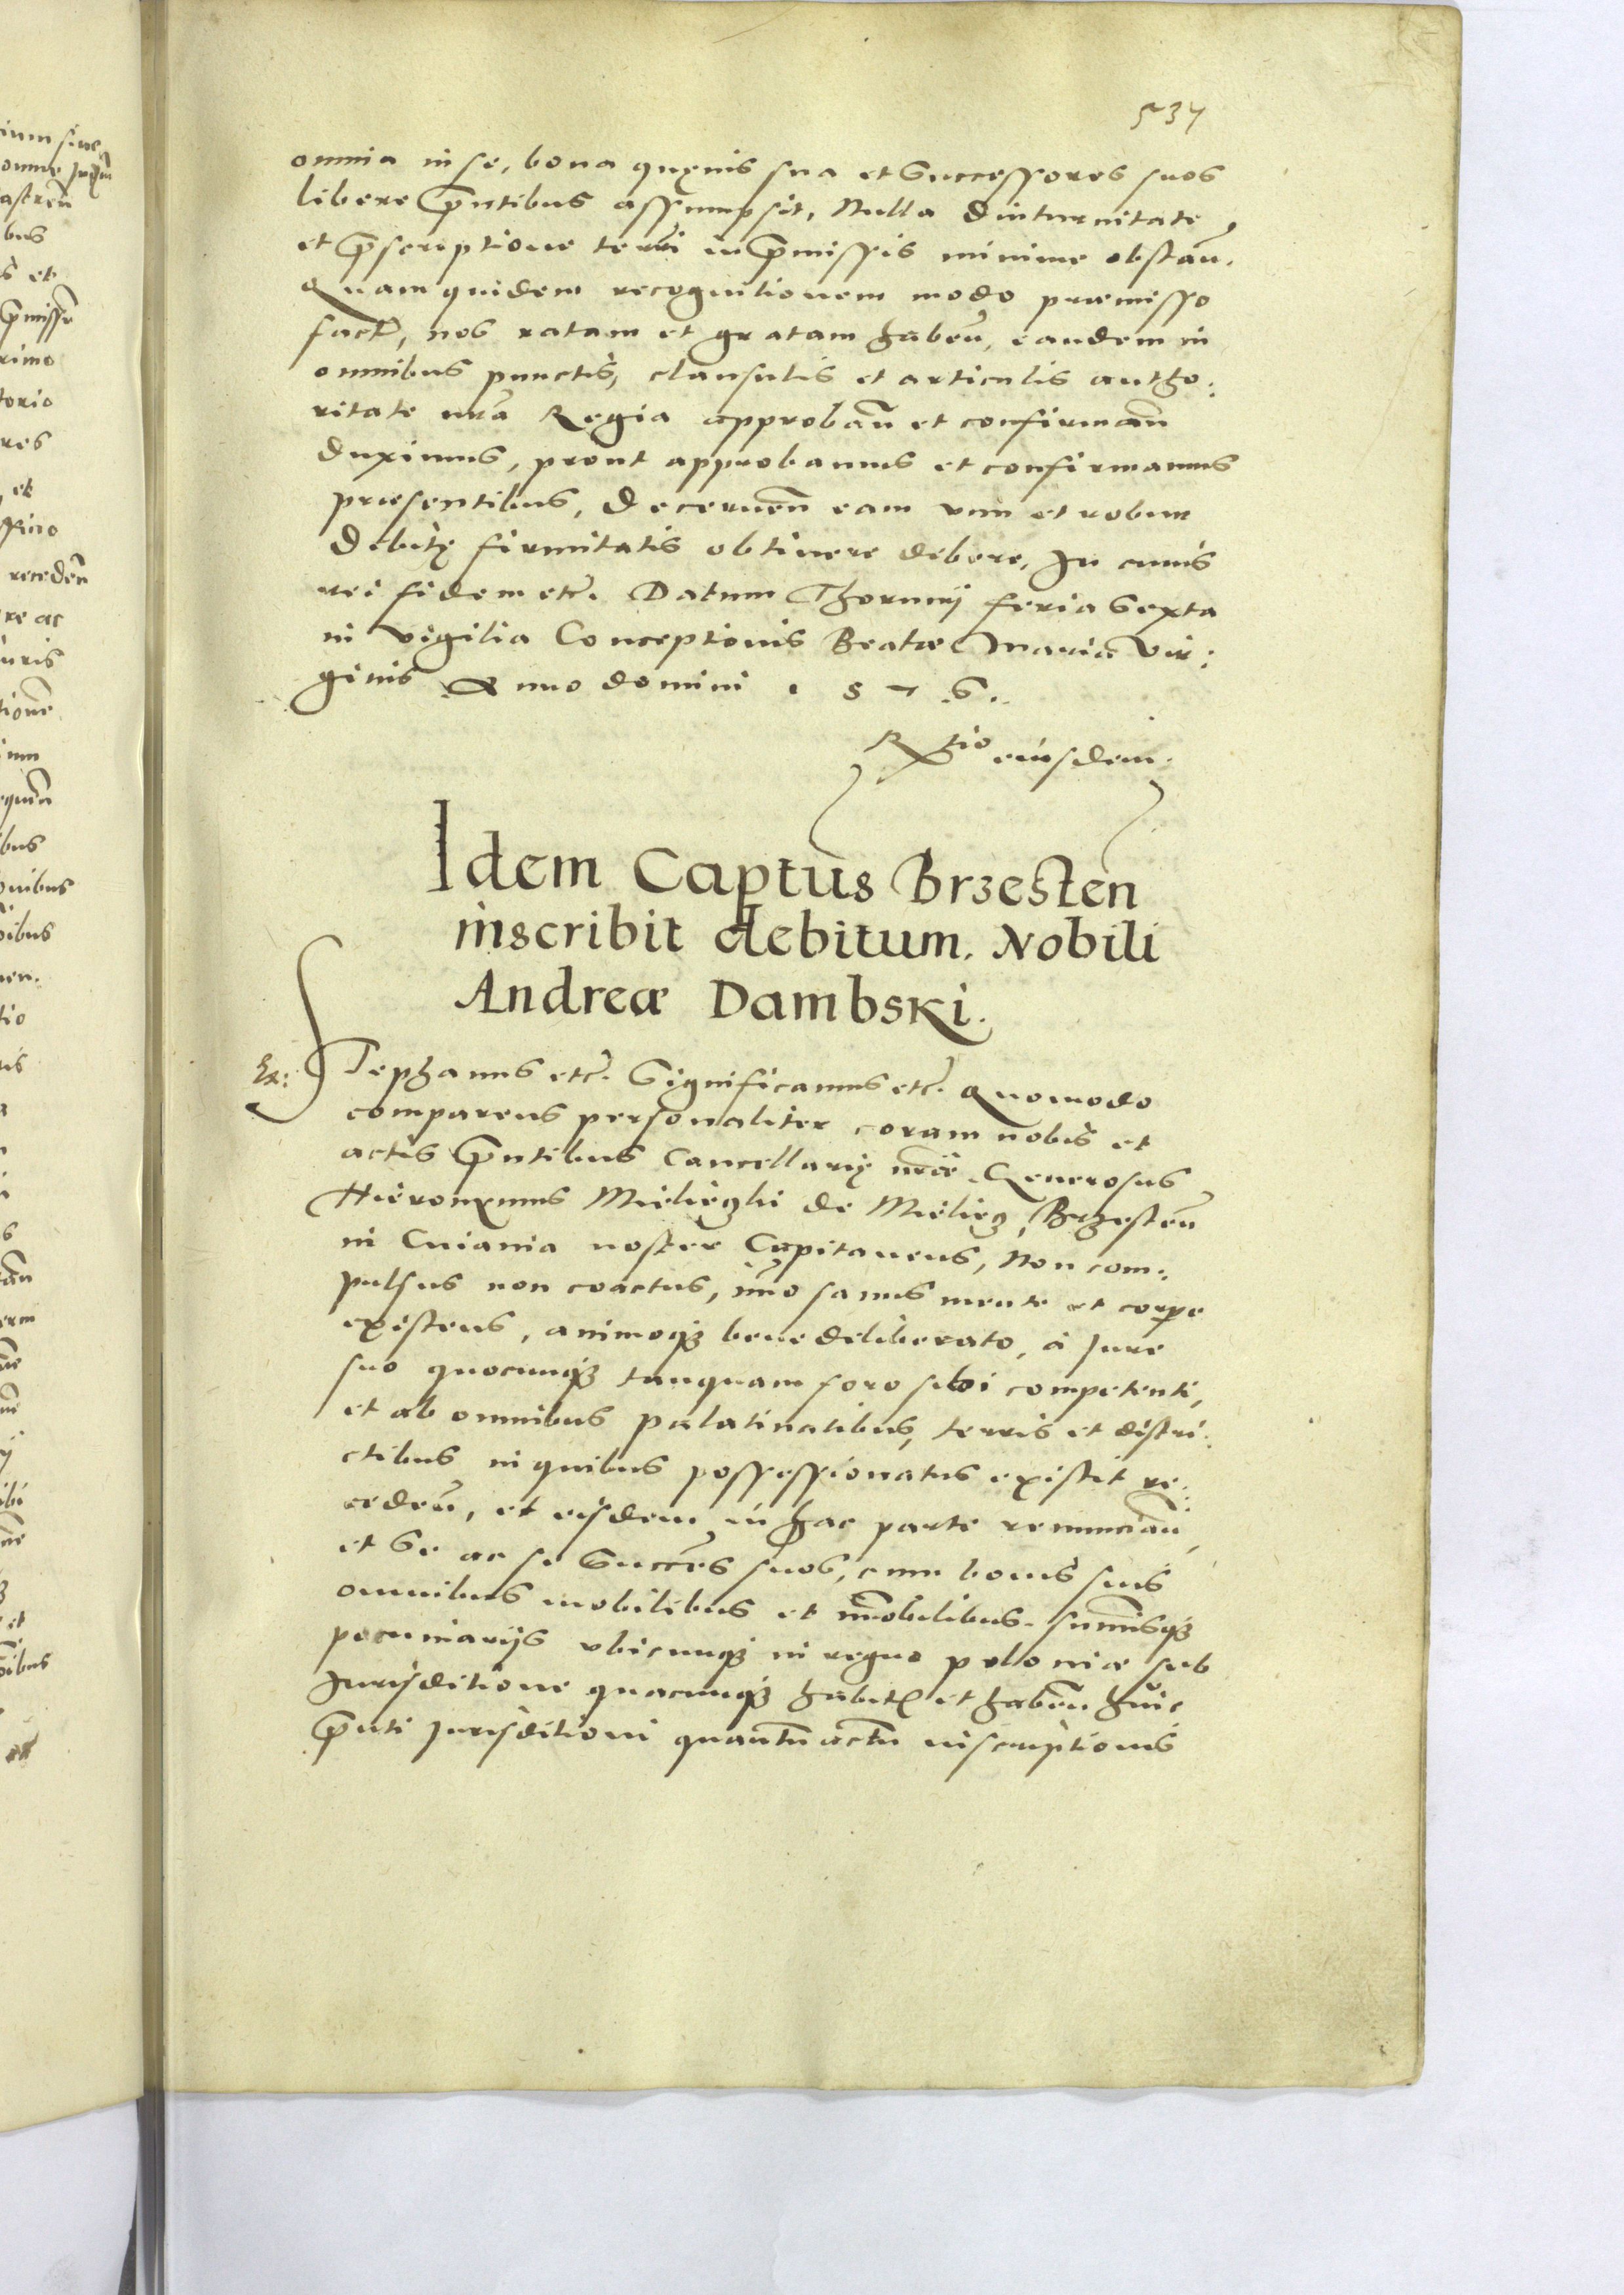 537
omnia in se, bona quęuis sua et Successores suos
libere p̃ntibus assumpsit, Nulla diuturnitate
et p̃scriptione terrĩ in p̃missis minime obstañ.
Quam quidem recognitionem modo præmisso
factã, nos ratam et gratam habeñ, eandem in
omnibus punctis, clausulis et articulis autho:
ritate nrã Regia approbañ et confirmañ
duximus, prout approbamus et confirmamus
præsentibus, Decerneñ eam vim et robur
debitę firmitatis obtinere debere. In cuius
rei fidem etc̃. Datum Thorunij feria Sexta
in vigilia Conceptionis Beatæ Mariæ Vir:
ginis Anno domini 1576.
Rtio eiusdem.
Idem Captus Brzesten
inscribit debitum. Nobili
Andreæ Dambski.
Ex:
Stephanus etc̃. Significamus etc̃. Quomodo
comparens personaliter coram nobis et
actis p̃ntibus Cancellarię nræ̃. Generosus
Hieronymus Mielieski de Brzesteñ
in Cuiauia noster Capitaneus, Non com:
pulsus non coactus, im̃o sanus mente et corpe
existens, animoq3 bene deliberato, à Jure
suo quocunq3 tanquam foro sibi competenti,
et ab omnibus palatinatibus, terris et distri:
ctibus in quibus possessionatus existit re:
cedeñ, et eisdem in hac parte renunciañ,
et Se ac se Succẽs suos, cum bonis suis
omnibus mobilibus et im̃obilibus. sum̃isq3
pecuniarijs vbicunq3 in regno poloniæ sub
Jurisditione quacunq3 habitis et habeñ huic
p̃nti Jurisditioni quantũ actũ inscriptionis